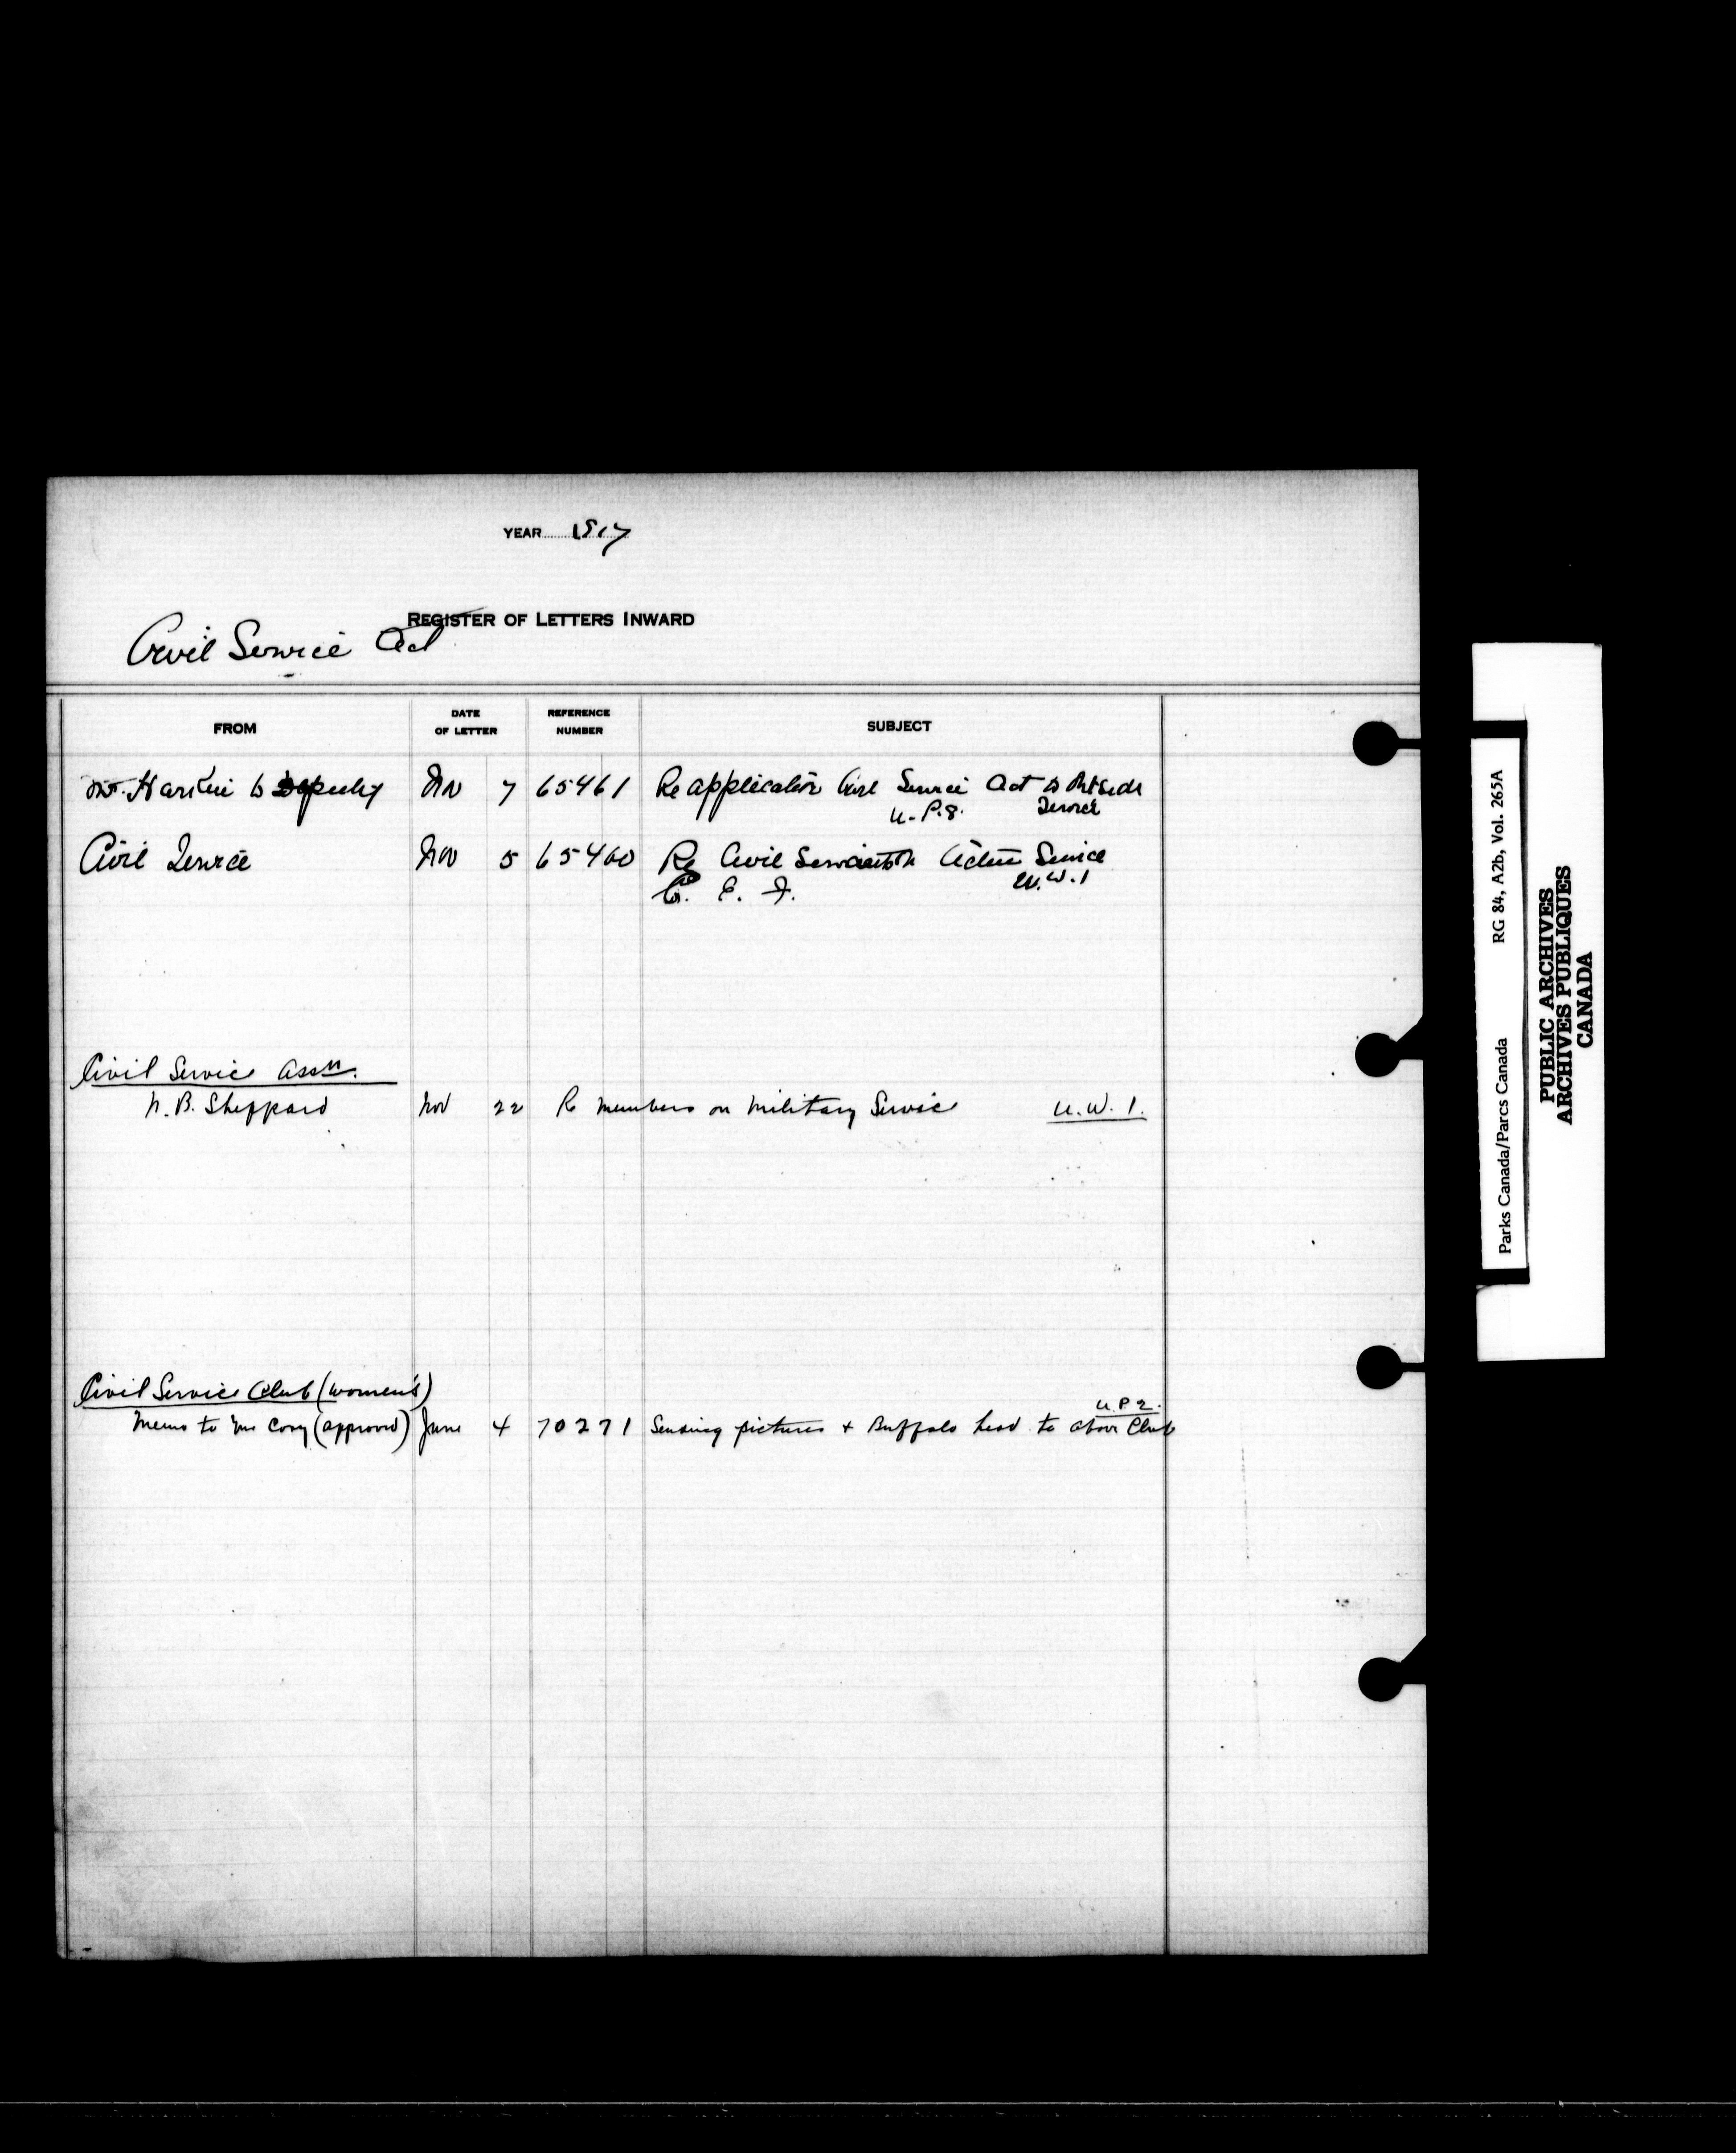 YEAR 1917
REGISTER OF LETTERS INWARD
Civil Service Act
FROM DATE OF LETTER REFERENCE NUMBER SUBJECT
Mr. Harkin to Deputy Nov 7 65461 Re application Civil Service Act to Outside
U.P.8. Service
Civil Service Nov 5 65460 Re Civil Servants on Active Service
C. E. F. U.W.1
Civil Service Assn.
N.B. Sheppard Nov 22 Re members on Military Service U.W.1.
Civil Service Club (women's)
U.P 2.
Memo to Mr Cory (approved) June 4 70271 Sending pictures + Buffalo head to above Club
Parks Canada/Parcs Canada RG 84, A2b, Vol. 265A
PUBLIC ARCHIVES
ARCHIVES PUBLIQUES
CANADA